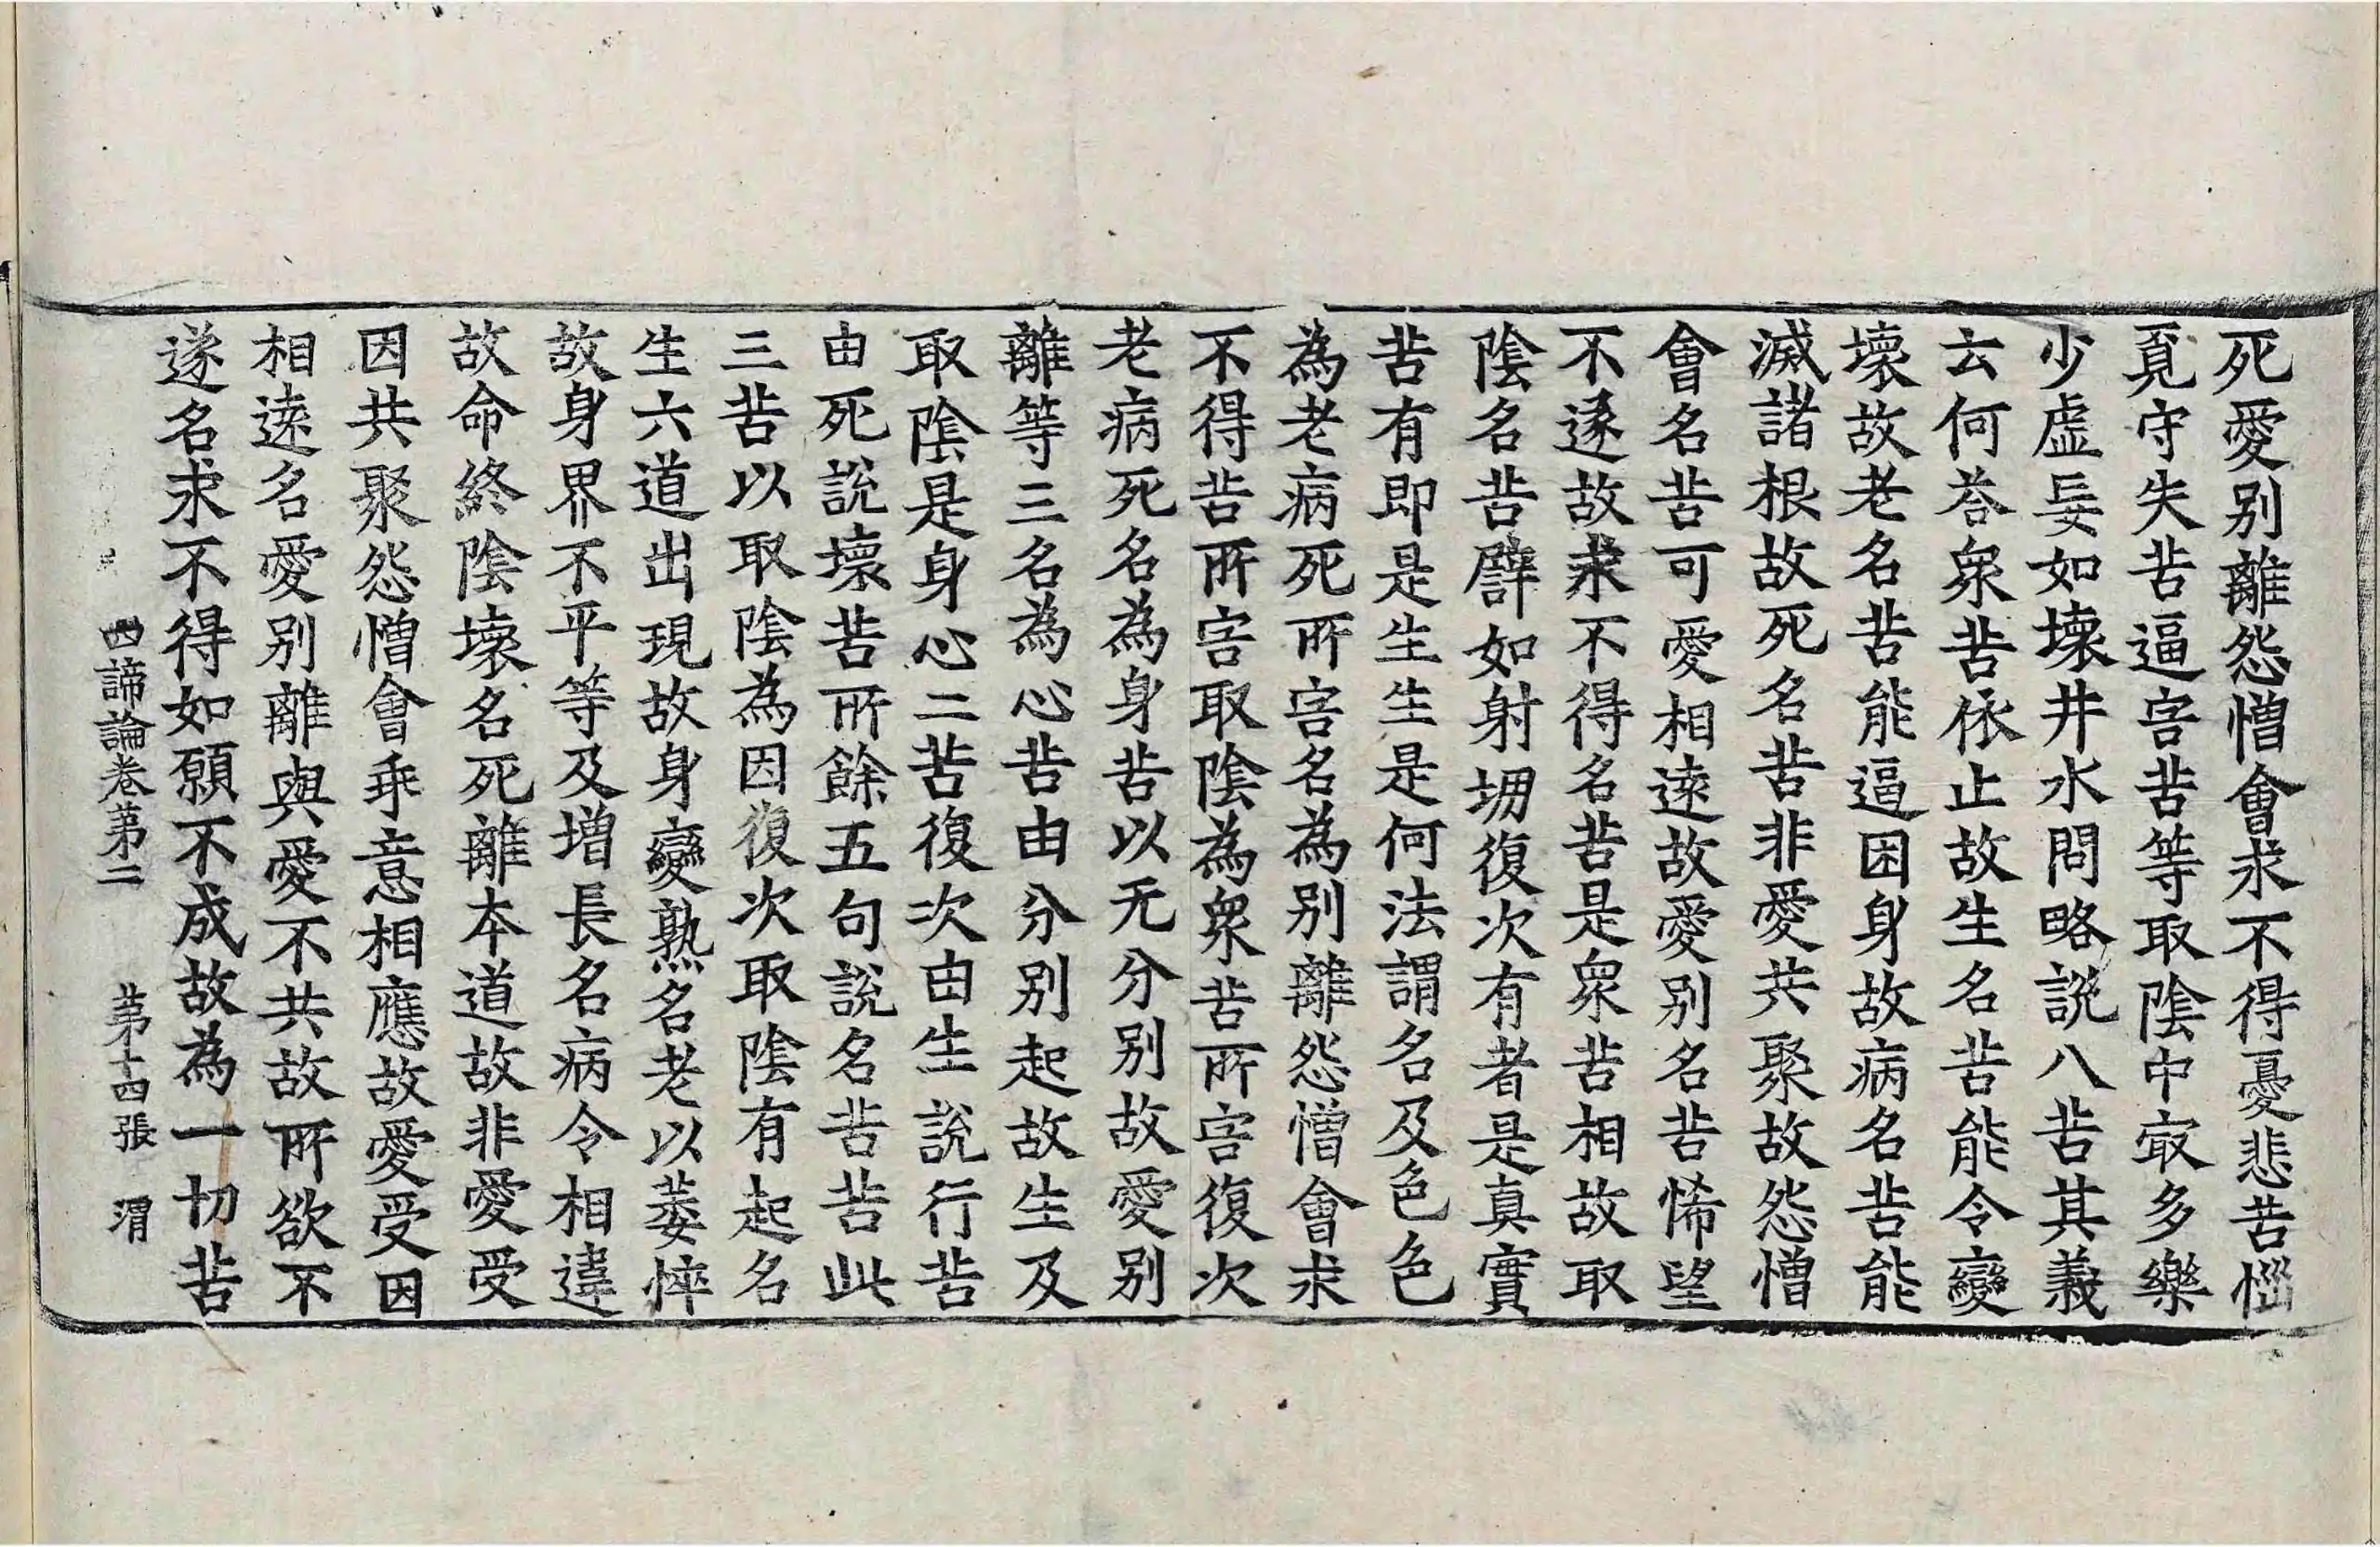 死愛別離怨憎會求不得憂悲苦惱
覓守失苦逼害苦等取陰中寂多樂
少虛妄如壞井水問略說八苦其義
云何荅衆苦依止故生名苦能令變
壞故老名苦能逼困身故病名苦能
滅諸根故死名苦非愛共聚故怨憎
會名苦可愛相遠故愛別名苦悕望
不遂故求不得名苦是衆苦相故取
陰名苦譬如射堋復次有者是真實
苦有即是生生是何法謂名及色色
為老病死所害名為別離怨憎會求
不得苦所害取陰為衆苦所害復次
老病死名為身苦以无分別故愛別
離等三名為心苦由分別起故生及
取陰是身心二苦復次由生說行苦
由死說壞苦所餘五句說名苦苦此
三苦以取陰為因復次取陰有起名
生六道出現故身變熟名老以萎悴
故身界不平等及增長名病令相違
故命終陰壞名死離本道故非愛受
因共聚怨憎會乖意相應故愛受因
相遠名愛別離與愛不共故所欲不
遂名求不得如願不成故為一切苦
四諦論卷苐二 苐十四張 渭